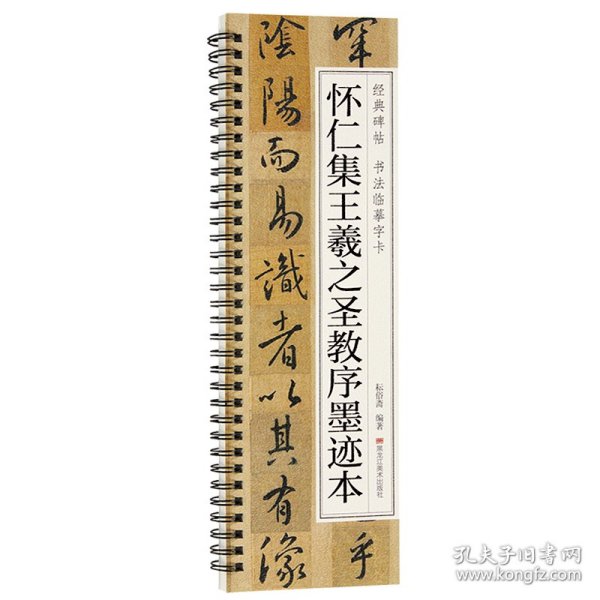 经典碑帖 书法临摹字卡
怀仁集王羲之圣教序墨迹本
耘俗斋 编著
黑龙江美术出版社
罕
乎
陰陽而易識者以其有像
孔夫子旧书网
www.kongfz.com